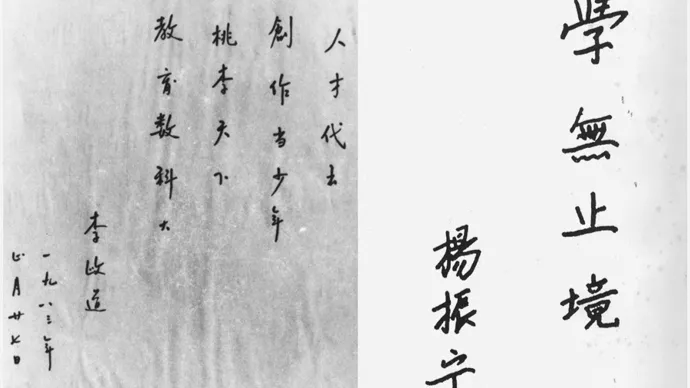 人才代出
創作当少年
桃李天下
教育数科大
李政道
一九八三年
月廿七日
學無止境
楊振宁